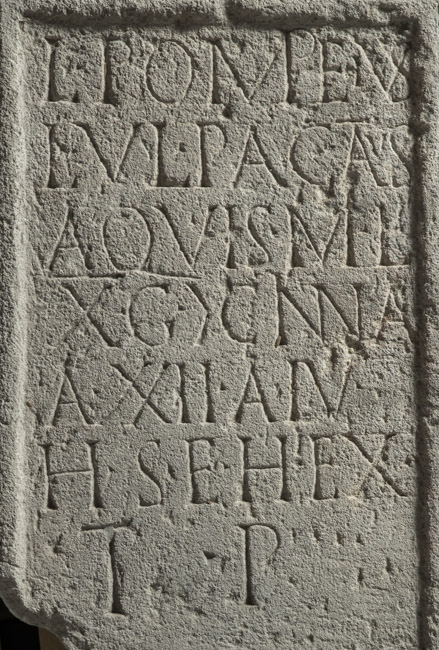 L·POMPEVS
F VL·PACATS
AQVIS·MIL
X·G·> CINNA
A·XII·A·LV
H·S·E·H·EX
T · P